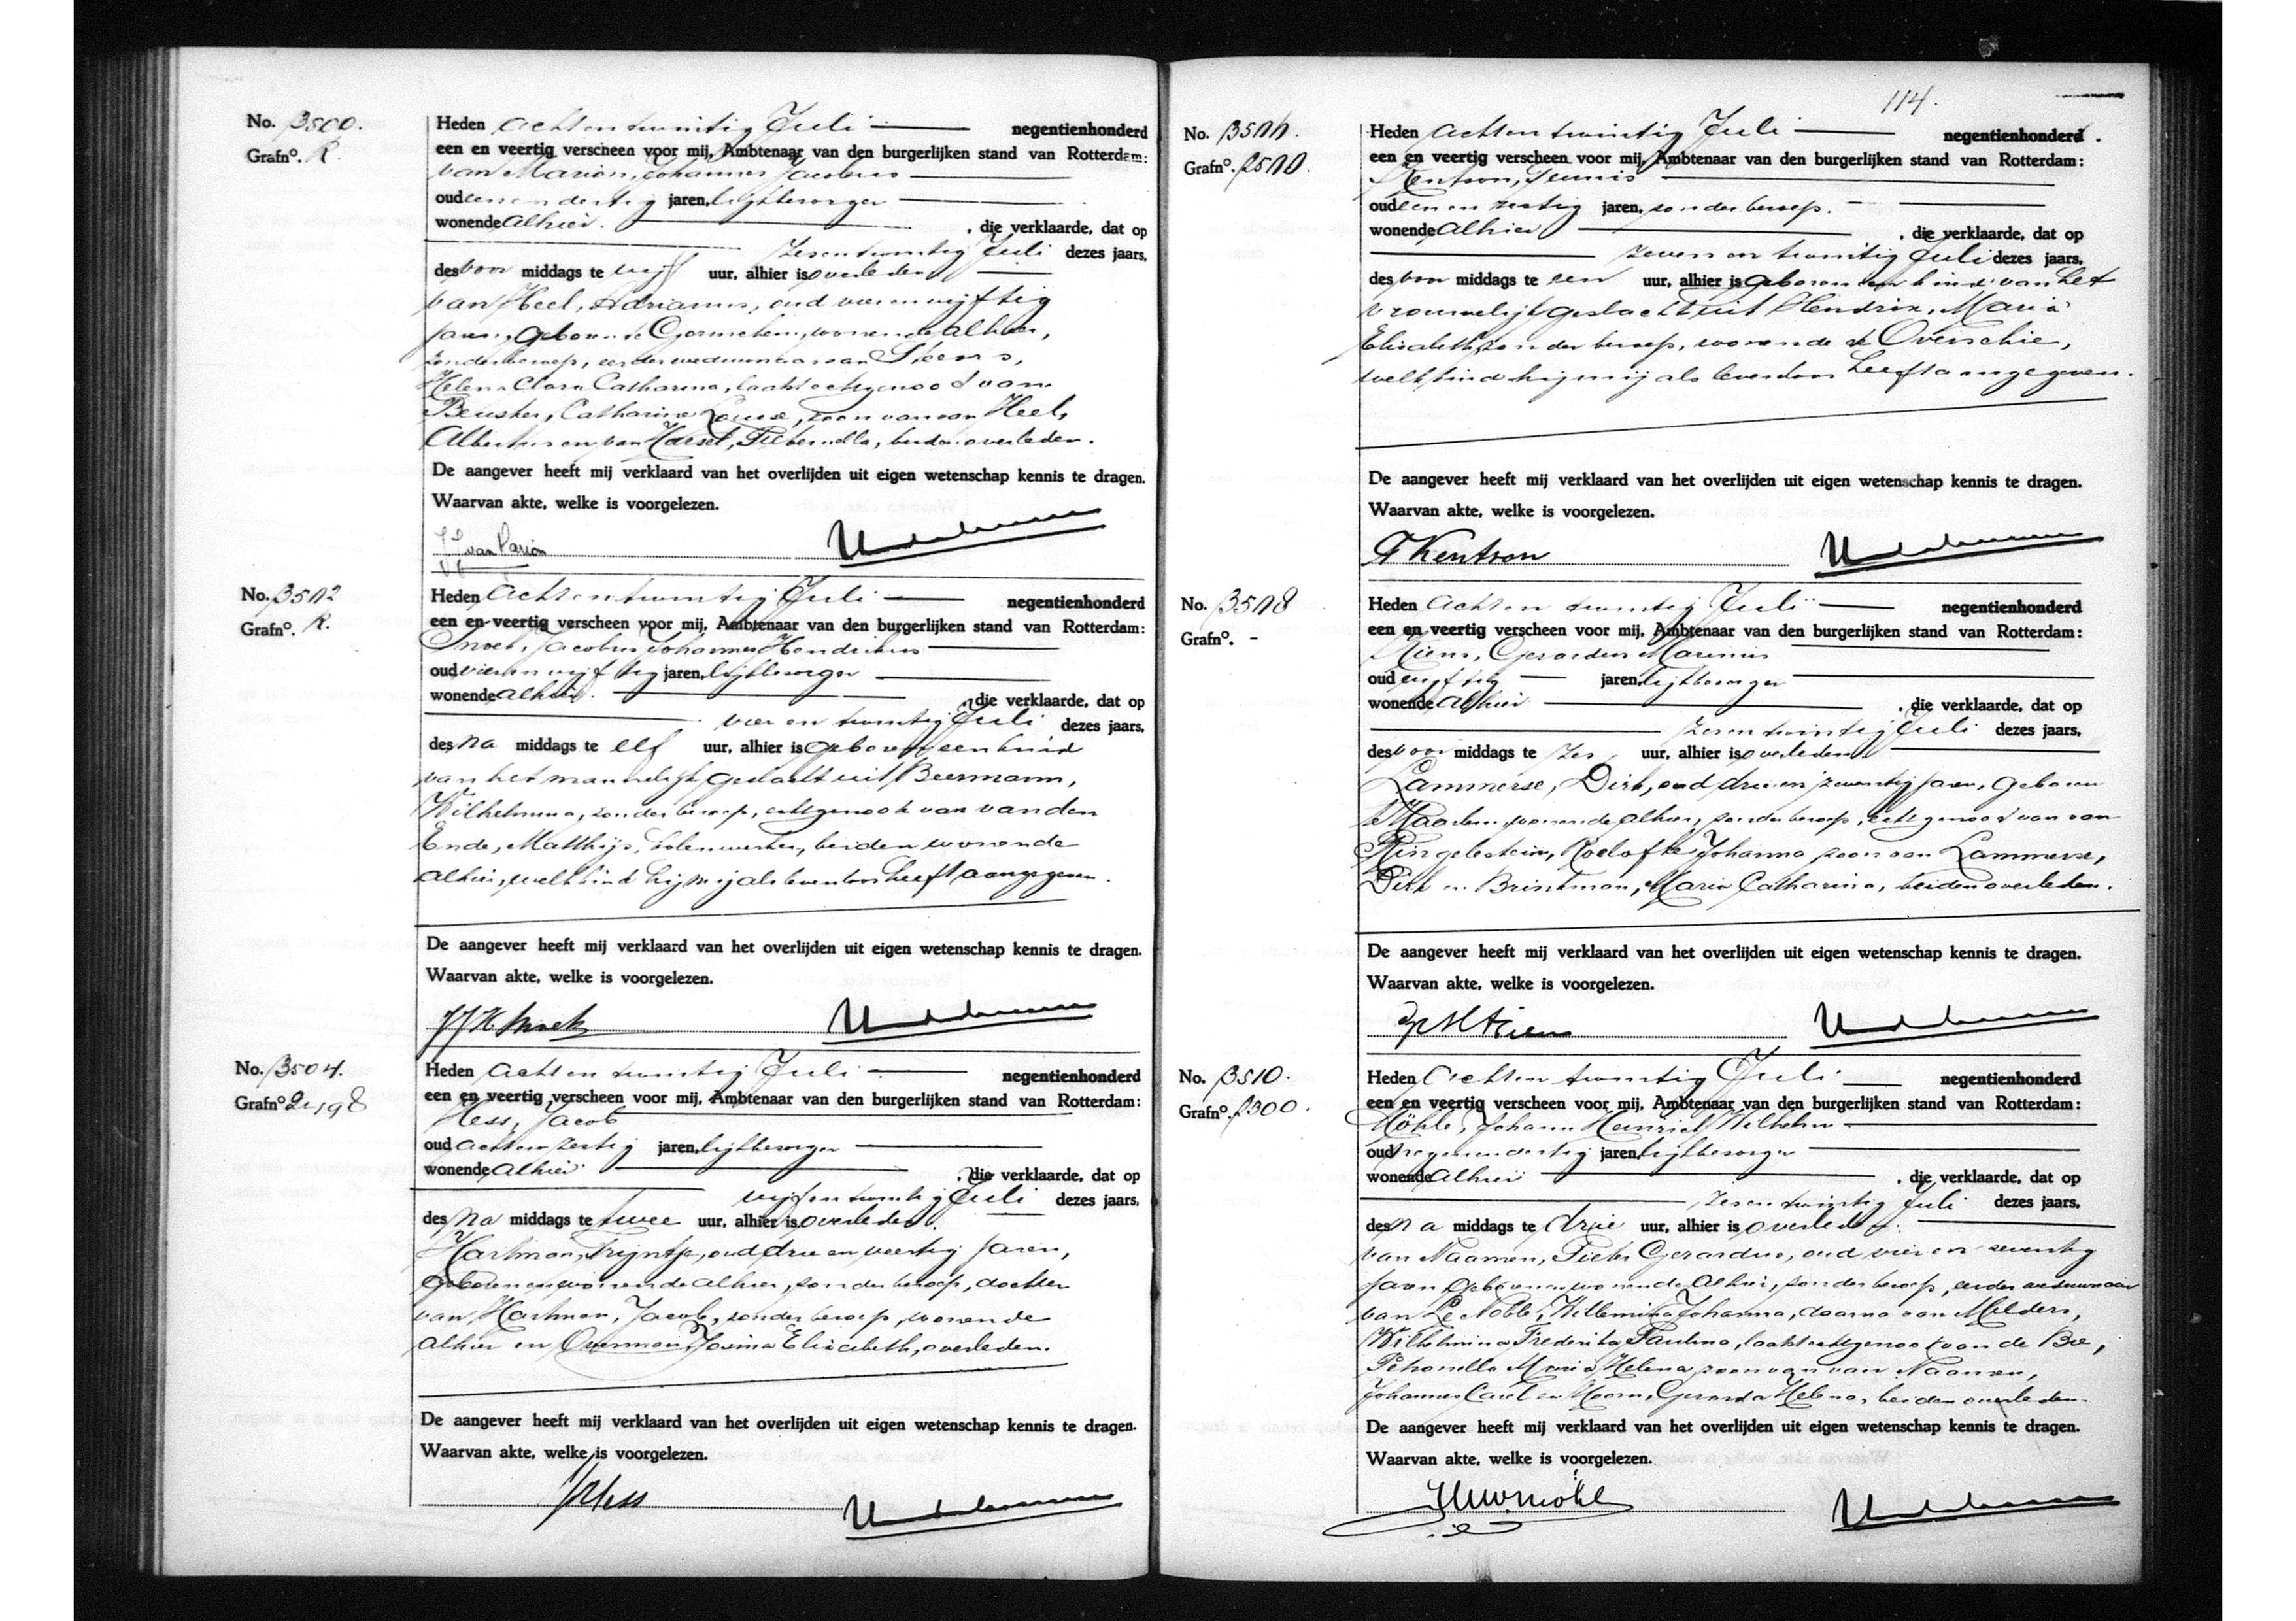 No. B500.
Grafno. R.
Heden Achtentwintig Juli negentienhonderd
een en veertig verscheen voor mij, Ambtenaar van den burgerlijken stand van Rotterdam:
van Marion, Johannes Jacobus
oud eenendertig jaren, lijkbezorger
wonende alhier. , die verklaarde, dat op
zesentwintig Juli dezes jaars,
des voor middags te vijf uur, alhier is overleden
van Heel, Adrianus, oud vierenvijftig
jaren, geboren te Gorinchem, wonende alhier,
zonder beroep, eerder weduwnaar van
Helena Clara Catharina, laatst echtgenoot van
Beusker, Catharina Louise, zoon van van Heel,
Albertus en van Hassel, Pieternella, beiden overleden.
De aangever heeft mij verklaard van het overlijden uit eigen wetenschap kennis te dragen.
Waarvan akte, welke is voorgelezen.
van Marion
No. B502
Grafno. R.
Heden Achtentwintig Juli negentienhonderd
een en veertig verscheen voor mij, Ambtenaar van den burgerlijken stand van Rotterdam:
Snoek, Jacobus Johannes Hendrikus
oud vierenvijftig jaren, lijkbezorger
wonende alhier. , die verklaarde, dat op
vier en twintig Juli dezes jaars,
des na middags te elf uur, alhier is geboren een kind
van het mannelijk geslacht uit Beermann,
Wilhelmina, zonder beroep, echtgenoote van van den
Ende, Matthijs, bolenwerker, beiden wonende
alhier, welk kind hij mij als levenloos heeft aangegeven.
De aangever heeft mij verklaard van het overlijden uit eigen wetenschap kennis te dragen.
Waarvan akte, welke is voorgelezen.
JJH Snoek
No. B504.
Grafno
Heden Achtentwintig Juli negentienhonderd
een en veertig verscheen voor mij, Ambtenaar van den burgerlijken stand van Rotterdam:
Hess, Jacob
oud achtenzestig jaren, lijkbezorger
wonende alhier , die verklaarde, dat op
vijfentwintig Juli dezes jaars,
des na middags te twee uur, alhier is overleden.
Hartman, Trijntje, oud drie en veertig jaren,
geboren en wonende alhier, zonder beroep, dochter
van Hartman, Jacob, zonder beroep, wonende
alhier en Overman, Josina Elizabeth, overleden.
De aangever heeft mij verklaard van het overlijden uit eigen wetenschap kennis te dragen.
Waarvan akte, welke is voorgelezen.
J Hess
114.
No.
Grafno.
Heden Achtentwintig Juli negentienhonderd
een en veertig verscheen voor mij, Ambtenaar van den burgerlijken stand van Rotterdam:
Kentson, Teunis
oud eenenzestig jaren, zonder beroep.
wonende alhier , die verklaarde, dat op
zeven en twintig Juli dezes jaars,
des voor middags te een uur, alhier is geboren een kind van het
vrouwelijk geslacht uit Hendrix, Maria
Elisabeth, zonder beroep, wonende te Overschie,
welk kind hij mij als levenloos heeft aangegeven.
De aangever heeft mij verklaard van het overlijden uit eigen wetenschap kennis te dragen.
Waarvan akte, welke is voorgelezen.
T Kentson
No. B508
Grafno. -
Heden Achtentwintig Juli negentienhonderd
een en veertig verscheen voor mij, Ambtenaar van den burgerlijken stand van Rotterdam:
Gerardus Marinus
oud vijftig jaren, lijkbezorger
wonende alhier , die verklaarde, dat op
zesentwintig Juli dezes jaars,
des voor middags te zes uur, alhier is overleden
Lammerse, Dirk, oud drie en zeventig jaren, geboren
te Maarden, wonende alhier, zonder beroep, echtgenoot van van
Ringelestein, Roelofke Johanna, zoon van Lammerse,
Dirk en Brinkman, Maria Catharina, beiden overleden.
De aangever heeft mij verklaard van het overlijden uit eigen wetenschap kennis te dragen.
Waarvan akte, welke is voorgelezen.
No. B510.
Grafno.
Heden Achtentwintig Juli negentienhonderd
een en veertig verscheen voor mij, Ambtenaar van den burgerlijken stand van Rotterdam:
Möhle, Johann Heinrich Wilhelm
oud negenendertig jaren, lijkbezorger
wonende alhier , die verklaarde, dat op
zesentwintig Juli dezes jaars,
des na middags te drie uur, alhier is overleden.
van Naamen, Pieter Gerardus, oud vier en zeventig
jaren, geboren en wonende alhier, zonder beroep, eerder weduwnaar
van Le Noble, Willemina Johanna, daarna van Milders,
Wilhelmina Frederika Paulina, laatst echtgenoot van de Bie,
Petronella Maria Helena, zoon van van Naamen,
Johannes Carel en Moorn, Gerarda Helena, beiden overleden.
De aangever heeft mij verklaard van het overlijden uit eigen wetenschap kennis te dragen.
Waarvan akte, welke is voorgelezen.
JHW Möhle